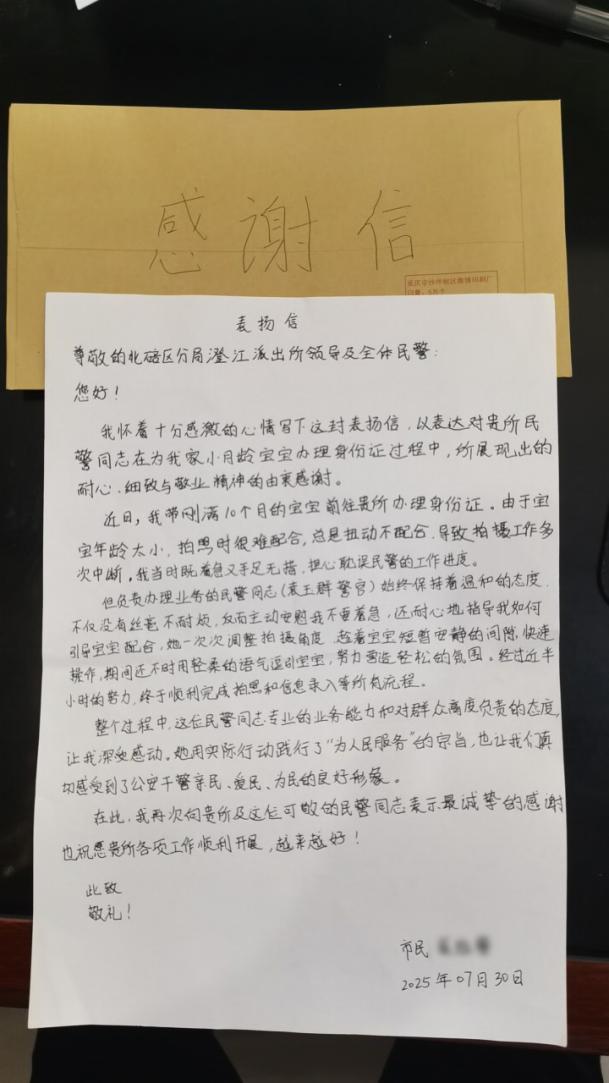 感谢信
重庆市沙坪坝区
表扬信
尊敬的北碚区分局澄江派出所领导及全体民警：
您好！
我怀着十分感激的心情写下这封表扬信，以表达对贵所民
警同志在为我家小月龄宝宝办理身份证过程中，所展现出的
耐心、细致与敬业精神的由衷感谢。
近日，我带刚满10个月的宝宝前往贵所办理身份证。由于宝
宝年龄太小，拍照时很难配合，总是扭动不配合，导致拍摄工作多
次中断。我当时既着急又手足无措，担心耽误民警的工作进度。
但负责办理业务的民警同志（袁玉群警官）始终保持着温和的态度，
不仅没有丝毫不耐烦，反而主动安慰我不要着急，还耐心地指导我如何
引导宝宝配合，她一次次调整拍摄角度，趁着宝宝短暂安静的间隙，快速
操作，期间还不时用轻柔的语气逗引宝宝，努力营造轻松的氛围。经过近半
小时的努力，终于顺利完成拍照和信息录入等所有流程。
整个过程中，这位民警同志专业的业务能力和对群众高度负责的态度，
让我深受感动。她用实际行动践行了“为人民服务”的宗旨，也让我们真
切感受到了公安干警亲民、爱民、为民的良好形象。
在此，我再次向贵所及这位可敬的民警同志表示最诚挚的感谢
也祝愿贵所各项工作顺利开展，越来越好！
此致
敬礼！
市民
2025年07月30日